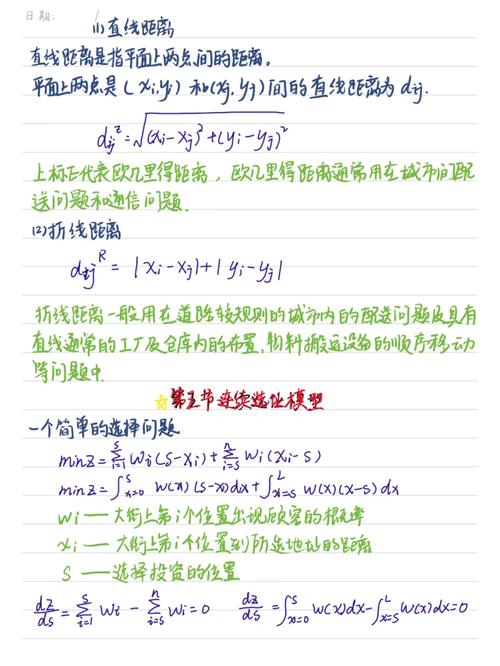 日期: /
(1)直线距离
直线距离是指平面上两点间的距离。
平面上两点是(xi,yi) 和(xj,yj)间的直线距离为dij.
dij^E=√(xi-xj)²+(yi-yj)²
上标E代表欧几里得距离，欧几里得距离通常用在城市间配
送问题和通信问题.
(2)折线距离
dij^R = |xi-xj|+|yi-yj|
折线距离一般用在道路较规则的城市内的配送问题及具有
直线通常的工厂及仓库内的布置,物料搬运设备的顺序移动
等问题中.
☆第三节连续选址模型
一个简单的选择问题
minZ=∑_{i=1}^{s} wi(s-xi)+∑_{i=s}^{n} wi(xi-s)
minZ=∫_{x=0}^{s} w(x)(s-x)dx+∫_{x=s}^{L} w(x)(x-s)dx
wi——大街上第i个位置出现顾客的概率
xi—大街上第i个位置到所选地址的距离
S ——选择投资的位置
dz/ds=∑_{i=1}^{s} wi - ∑_{i=s}^{n} wi=0 dz/ds=∫_{x=0}^{s} w(x)dx-∫_{x=s}^{L} w(x)dx=0